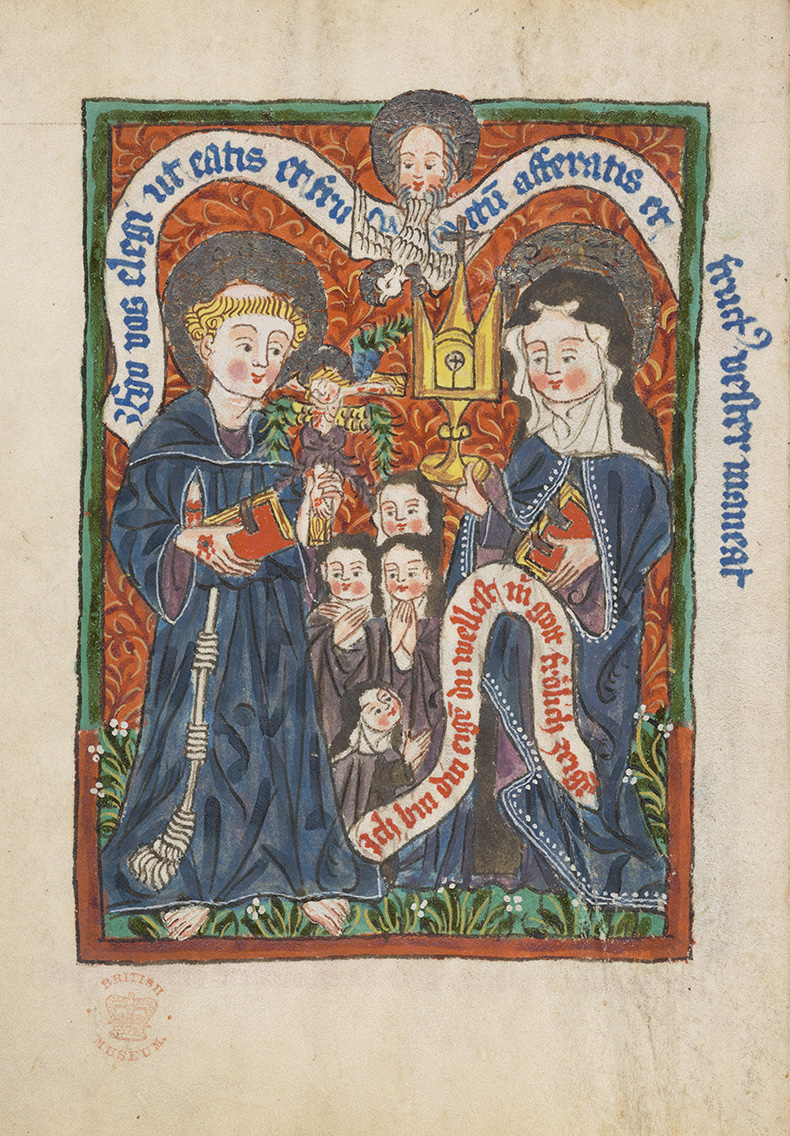 Ego vos elegi ut eatis et fru
ctū afferatis et
fruct⁹ vester maneat
Ich bin din eigē du wellest m̄ gott frölich zeigē
BRITISH
MUSEUM